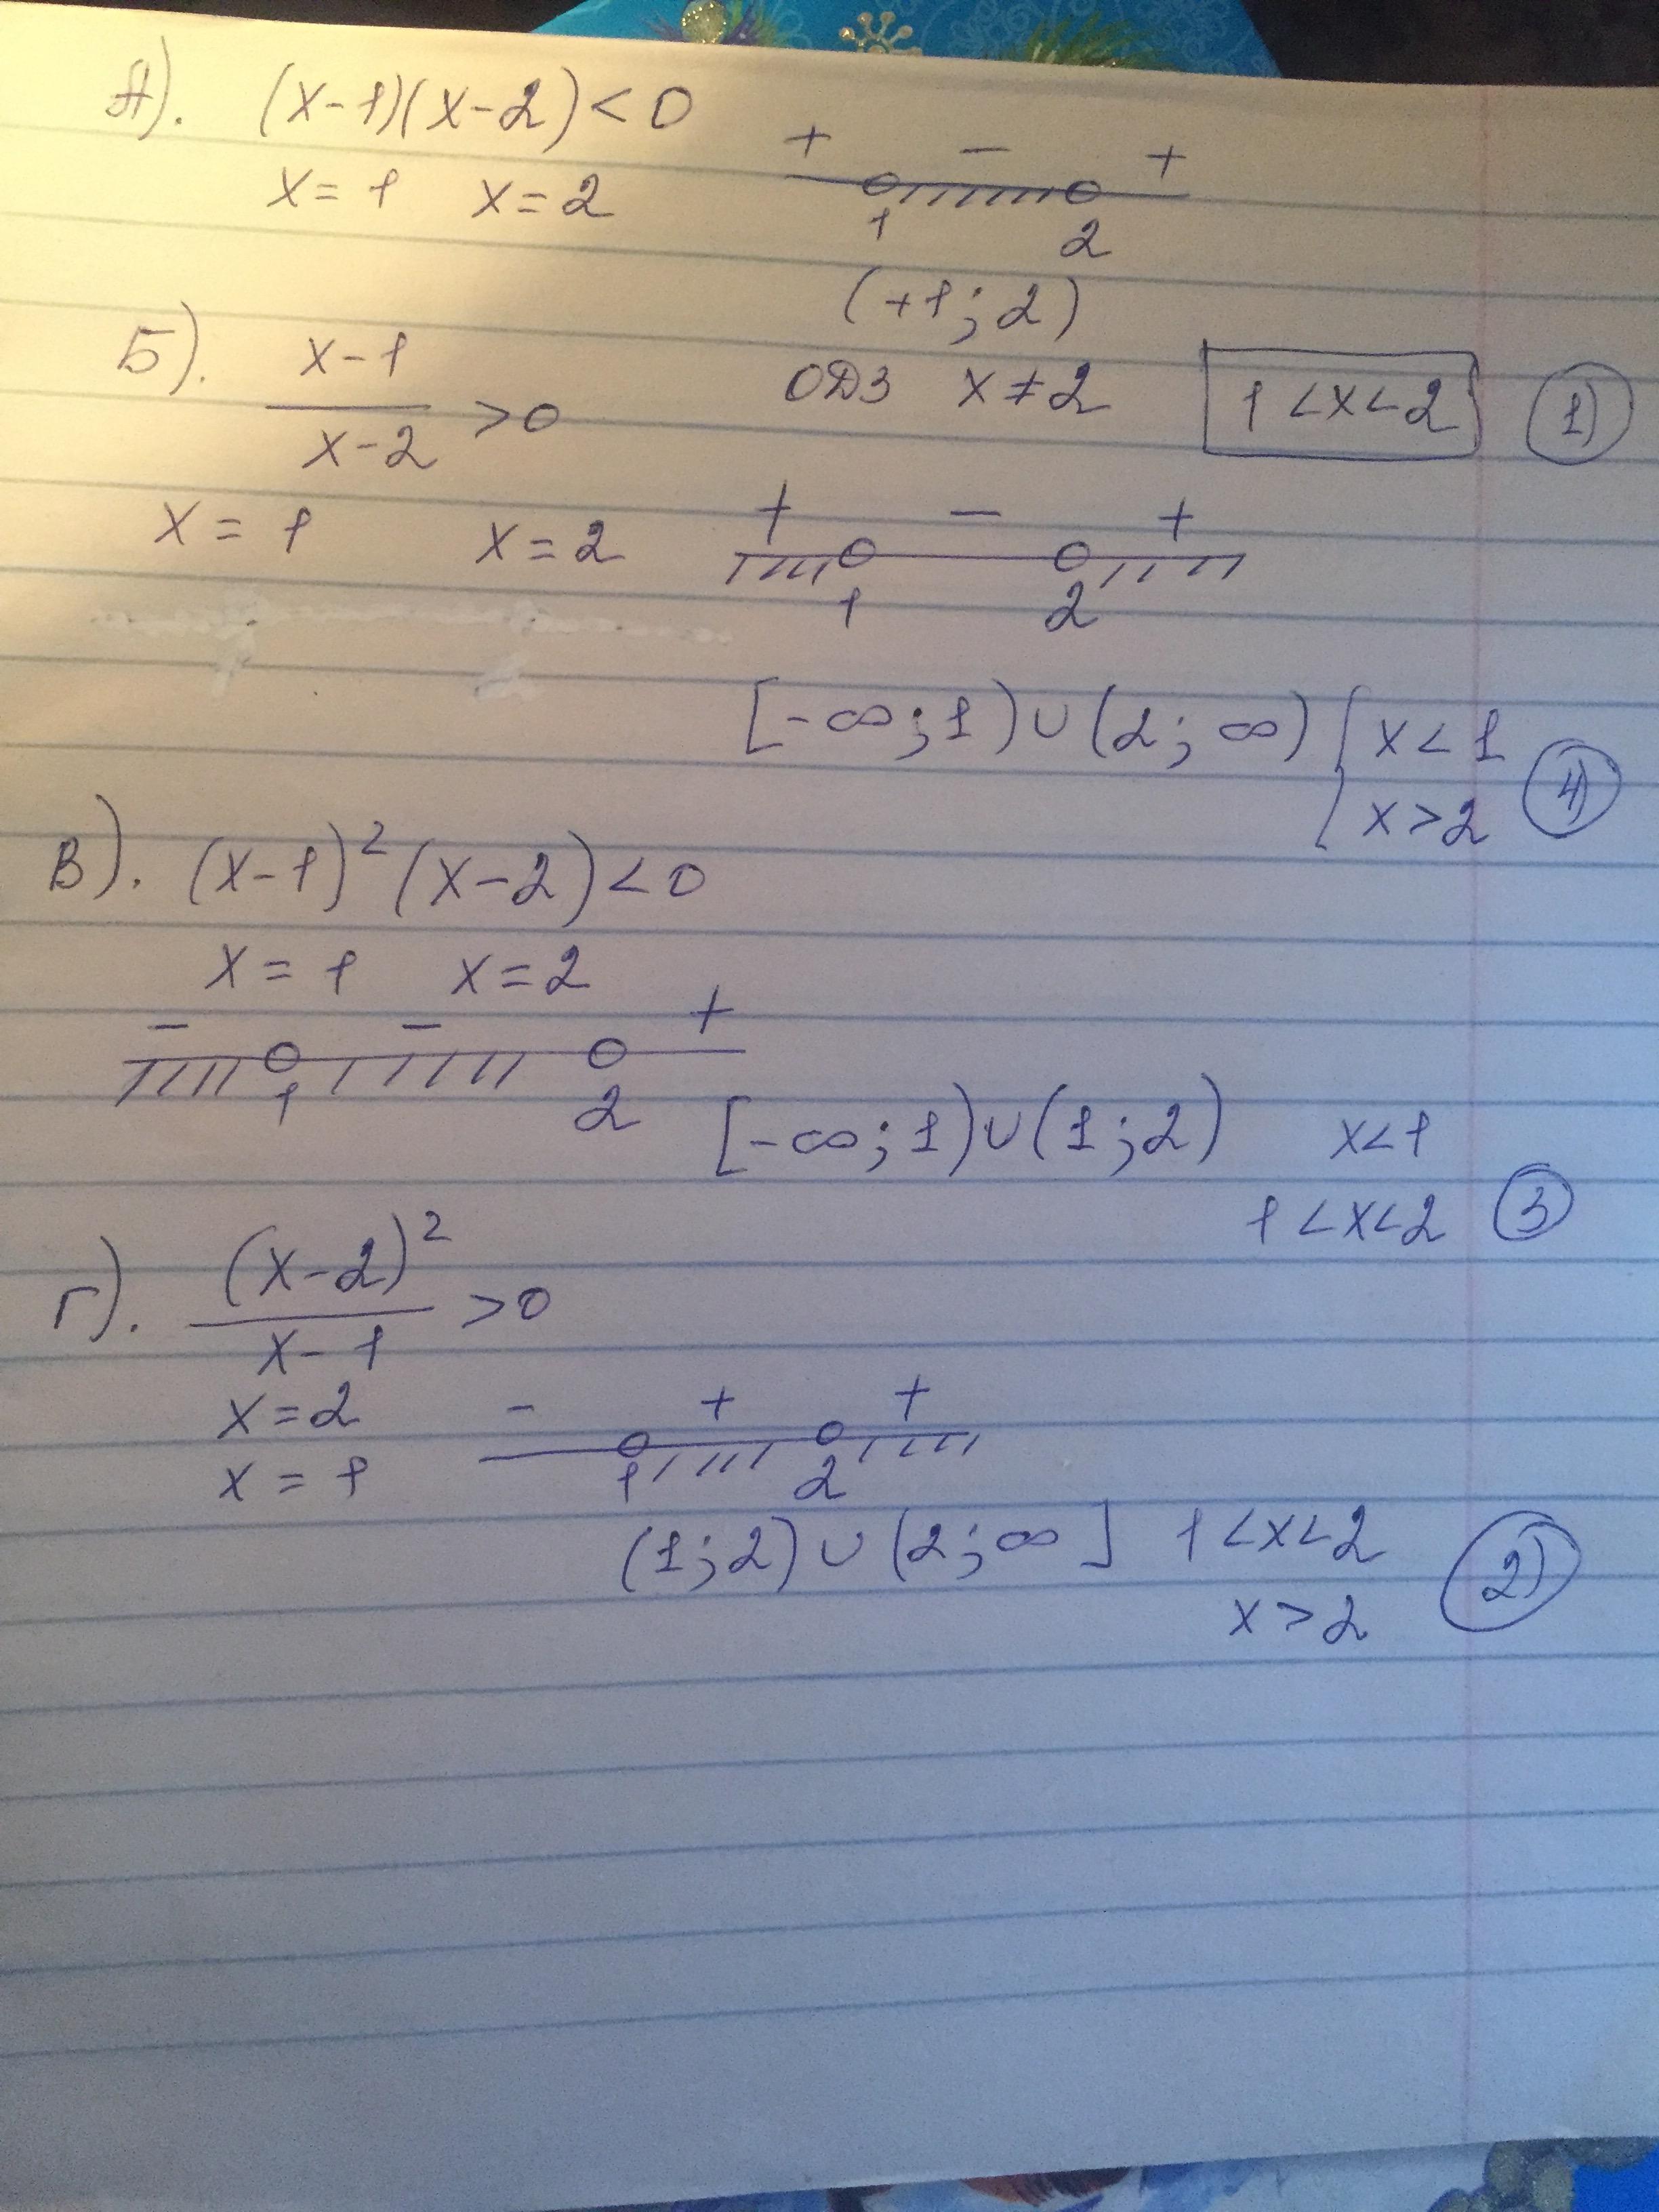 А). (x-1)(x-2)<0
x=1 x=2
+ - +
1 2
(+1;2)
Б). x-1
x-2 >0
ОДЗ x≠2 1<x<2 1)
x=1 x=2
+ - +
1 2
[-∞;1)∪(2;∞) x<1
x>2 4)
В). (x-1)²(x-2)<0
x=1 x=2
- - +
1 2
[-∞;1)∪(1;2) x<1
1<x<2 3
Г). (x-2)²
x-1 >0
x=2
x=1
- + +
1 2
(1;2)∪(2;∞] 1<x<2
x>2 2)